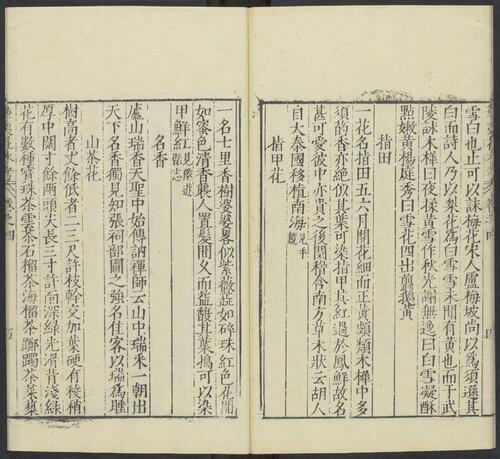 雪白也止可以詠梅花宋人盧梅坡尚以為須遜其
白而詩人乃以梨花為白雪雪未聞有黃也而于武
陵詠木樨曰夜揉黃雪作秋光謝無逸曰白雪凝酥
點嫩黃楊庭秀曰雪花四出剪鵝黃
指田
一花名指田五六月開花細而正黃頗類木樨中多
須菂香亦絶似其葉可染指甲其紅過於鳳鮮故名
甚可愛彼中亦貴之後閱稽含南方草木狀云胡人
自大秦國移植南海見千
鏡
指甲花
一名七里香樹婆娑畧似紫薇蕋如碎珠紅色花開
如蜜色清香襲人置髮間久而益馥其葉搗可以染
甲鮮紅見
志
名香
廬山瑞香天聖中始傳訥禪師云山中瑞采一朝出
天下名香獨見知張祠部圖之強名佳客以瑞為睡
山茶花
樹高者丈餘低者二三尺許枝幹交加葉硬有稜稍
厚中闊寸餘兩頭尖長三寸許面深綠光滑背淺綠
花有數種寶珠茶雲茶石榴茶海榴茶躑躅茶茱萸
卷之四